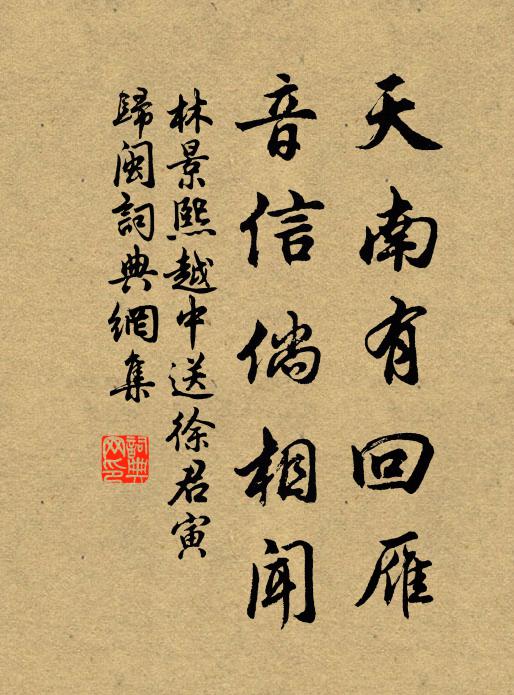 天南有回雁
音信倘相聞
林景熙越中送徐君寅
歸閩詞典網集
詞典
网印